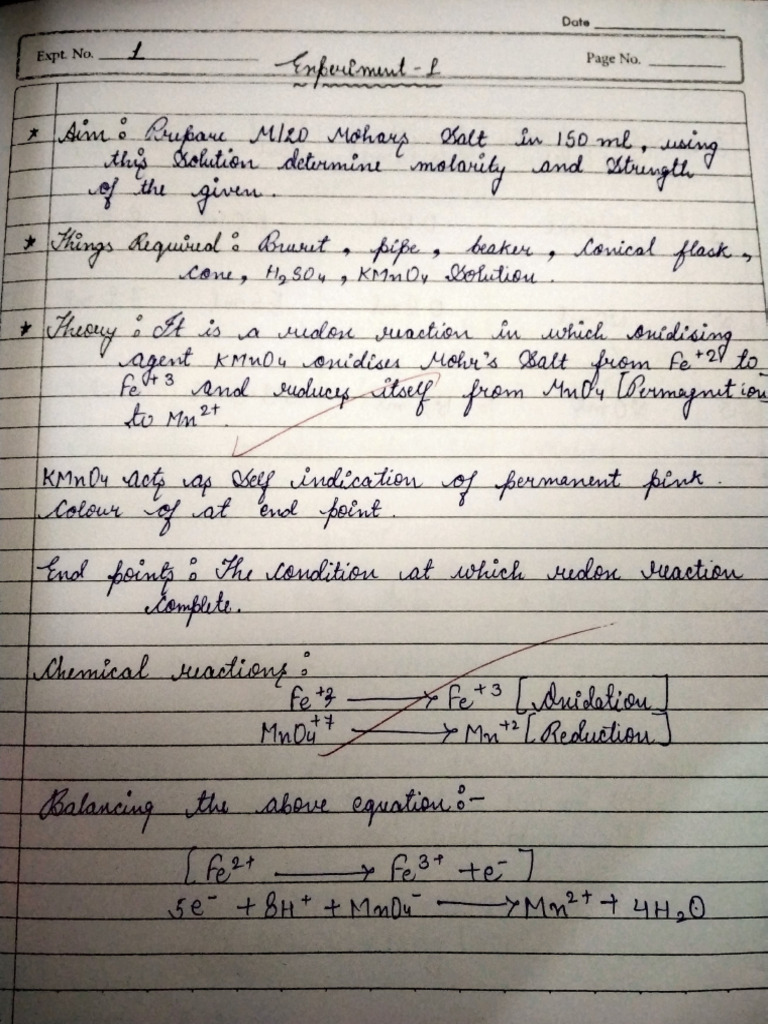 Date
Expt. No. 1
Page No.
Experiment - 1
* Aim : Prepare M/20 Mohars Salt in 150 ml, using
this Solution determine molarity and Strength
of the given.
* Things Required : Bruret, pipe, beaker, Conical flask,
Cone, H₂SO₄, KMnO₄ Solution.
* Theory : It is a redox reaction in which oxidising
agent KMnO₄ oxidises Mohr's Salt from Fe⁺² to
Fe⁺³ and reduces itself from MnO₄ [Permagnetion
to Mn²⁺.
KMnO₄ acts as Self indication of permanent pink.
Colour of at end point.
End points : The Condition at which redox reaction
Complete.
Chemical reactions :
Fe⁺² ⟶ Fe⁺³ [Oxidation]
MnO₄⁺⁷ ⟶ Mn⁺² [Reduction]
Balancing the above equation :-
[Fe²⁺ ⟶ Fe³⁺ + e⁻]
5e⁻ + 8H⁺ + MnO₄⁻ ⟶ Mn²⁺ + 4H₂O